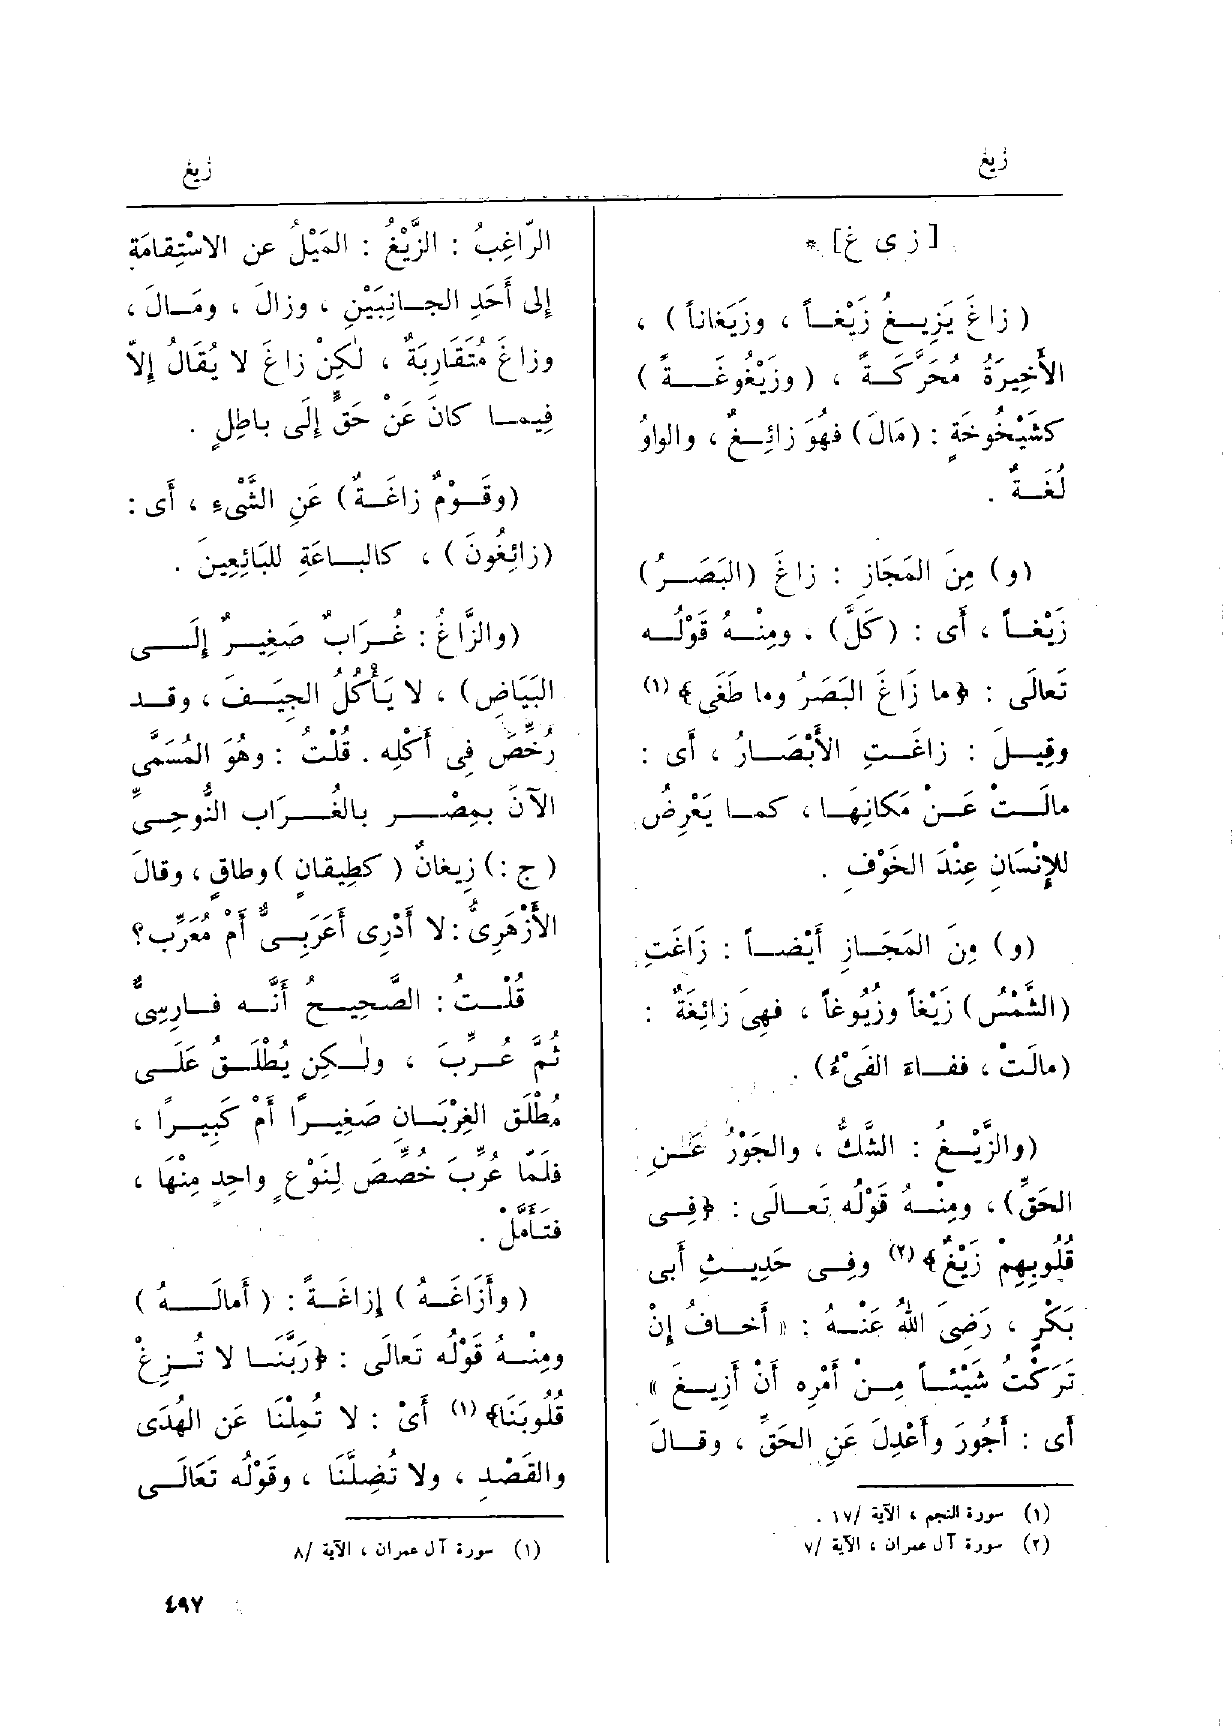 زيغ
زيغ
[ ز ى غ ] *
( زاغَ يَزِيــغُ زَيْغــاً ، وزَيَغاناً ) ،
الأَخِيرَةُ مُحَرَّكَــةً ، ( وزَيْغُوغَــــةً )
كشَيْخُوخَةٍ : (مَالَ) فهُوَ زائِــغٌ ، والواوُ
لُغَــةٌ .
(و) مِنَ المَجَازِ : زاغَ (البَصَــرُ)
زَيْغــاً ، أى : (كَلَّ) ، ومِنْــهُ قَوْلُــه
تَعالَى : ﴿ما زَاغَ البَصَرُ وما طَغَى﴾ (١)
وقِيــلَ : زاغَــتِ الأَبْصَــارُ ، أى :
مالَــتْ عَــنْ مَكانِهَــا ، كمــا يَعْرِضُ
للإِنْسَانِ عِنْدَ الخَوْفِ .
(و) مِنَ المَجَــازِ أَيْضــاً : زَاغَتِ
(الشَّمْسُ) زَيْغاً وزُيُوغاً ، فهِىَ زائِغَةٌ :
(مالَتْ ، ففــاءَ الفَىْءُ) .
(والزَّيْــغُ : الشَّكُّ ، والجَوْرُ عَــنِ
الحَقِّ) ، ومِنْــهُ قَوْلُه تَعــالَى : ﴿فِــى
قُلُوبِهِمْ زَيْغٌ﴾ (٢) وفِــى حَدِيــثِ أَبى
بَكْرٍ ، رَضِىَ اللهُ عَنْــهُ : « أَخــافُ إِنْ
تَرَكْتُ شَيْئــاً مِــنْ أَمْرِه أَنْ أَزِيــغَ »
أى : أَجُورَ وأَعْدِلَ عَنِ الحَقِّ ، وقــالَ
(١) سورة النجم ، الآية /١٧ .
(٢) سورة آل عمران ، الآية /٧
الرّاغِبُ : الزَّيْغُ : المَيْلُ عن الاسْتِقامَةِ
إلى أَحَدِ الجــانِبَيْنِ ، وزالَ ، ومَــالَ ،
وزاغَ مُتَقَارِبَةٌ ، لٰكِنْ زاغَ لا يُقَالُ إلاّ
فِيمــا كانَ عَنْ حَقٍّ إِلَى باطِلٍ .
(وقَــوْمٌ زاغَــةٌ) عَنِ الشَّىْءِ ، أى :
(زائِغُونَ) ، كالبــاعَةِ للبَائِعِينَ .
(والزَّاغُ : غُــرَابٌ صَغِيــرٌ إِلَـــى
البَيَاضِ) ، لا يَــأْكُلُ الجِيَــفَ ، وقــد
رُخِّصَ فِى أَكْلِه . قُلْتُ : وهُوَ المُسَمَّى
الآنَ بمِصْـــر بالغُــرَابِ النُّوحِــىِّ
( ج : ) زِيغانٌ ( كطِيقانٍ ) وطاقٍ ، وقالَ
الأَزْهَرِىُّ : لا أَدْرِى أَعَرَبِــىٌّ أَمْ مُعَرَّب؟
قُلْــتُ : الصَّحِيــحُ أَنَّــه فــارِسِىٌّ
ثُمَّ عُــرِّبَ ، ولٰــكِن يُطْلَــقُ عَلَــى
مُطْلَقِ الغِرْبَــانِ صَغِيــرًا أَمْ كَبِيــرًا ،
فلَمّا عُرِّبَ خُصِّصَ لِنَوْعٍ واحِدٍ مِنْهَا ،
فتَــأَمَّلْ .
( وأَزَاغَــهُ ) إِزاغَــةً : ( أَمالَـــهُ )
ومِنْــهُ قَوْلُه تَعالَى : ﴿رَبَّنَــا لا تُــزِغْ
قُلُوبَنَا﴾ (١) أَىْ : لا تُمِلْنَا عَن الهُدَى
والقَصْدِ ، ولا تُضِلَّنَا ، وقَوْلُه تَعَالَــى
(١) سورة آل عمران ، الآية /٨
٤٩٧